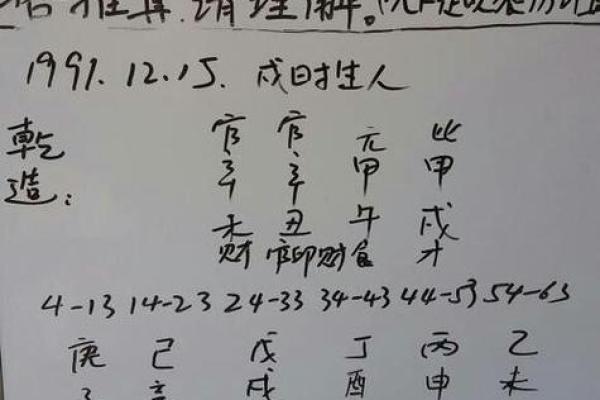 推算,请理解。(
1991.12.15. 戌时生人
乾造:
官 官 元 比
辛 辛 甲 甲
未 丑 午 戌
财 官印财 食 才
4-13 14-23 24-33 34-43 44-53 54-63
庚 己 戊 丁 丙 乙
子 亥 戌 酉 申 未